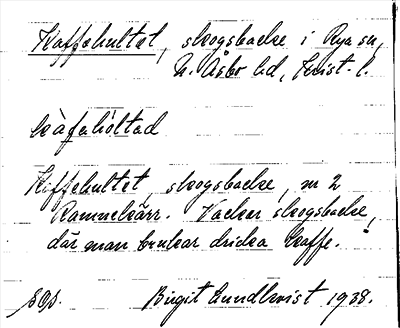 Kaffekultet, skogsbacke i Rya sn,
N. Åsbo hd, Krist. l.
kàfəkòltad
Kaffekultet, skogsbacke, nr 2
Ramnekärr. Vacker skogsbacke,
där man brukar dricka kaffe.
sep. Birgit Lundkvist 1938.